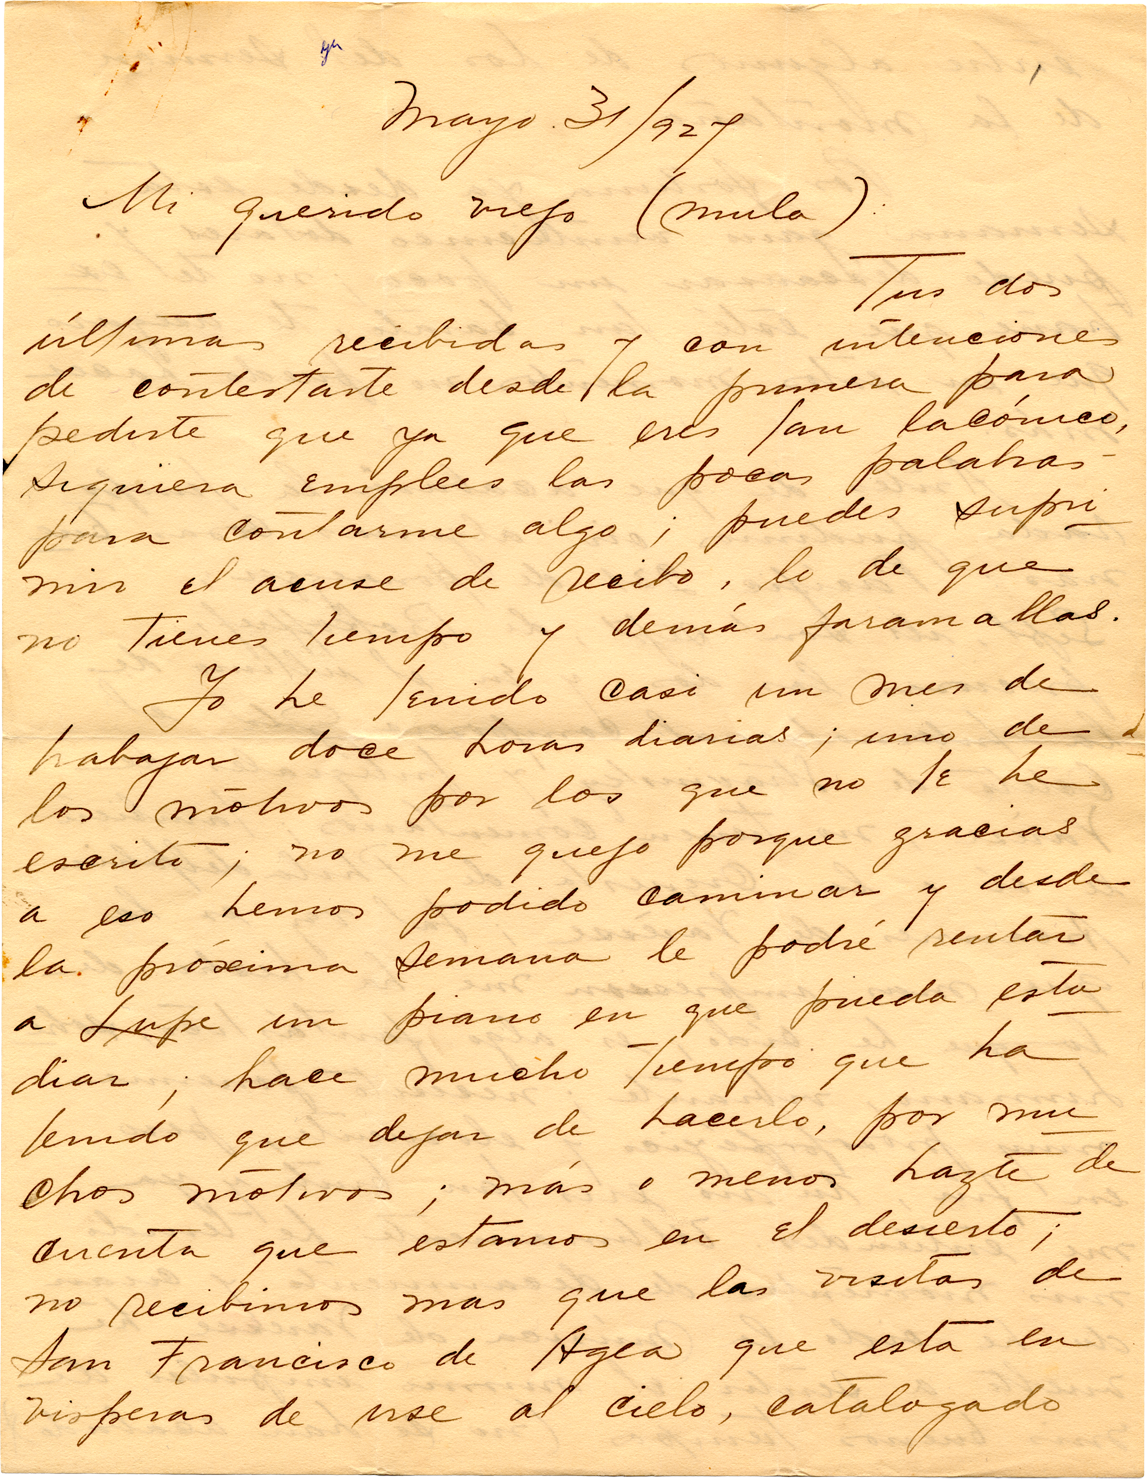 Mayo. 31/927
Mi querido viejo (mula):
Tus dos
últimas recibidas y con intenciones
de contestarte desde la primera para
pedirte que ya que eres tan lacónico,
siquiera emplees las pocas palabras
para contarme algo; puedes supri
mir el acuse de recibo, lo de que
no tienes tiempo y demás faramallas.
Yo he tenido casi un mes de
trabajar doce horas diarias; uno de
los motivos por los que no te he
escrito; no me quejo porque gracias
a eso hemos podido caminar y desde
la próxima semana le podré rentar
a Lupe un piano en que pueda estu
diar; hace mucho tiempo que ha
tenido que dejar de hacerlo, por mu
chos motivos; más o menos hazte de
cuenta que estamos en el desierto;
no recibimos mas que las visitas de
San Francisco de Agea que esta en
visperas de irse al cielo, catalogado